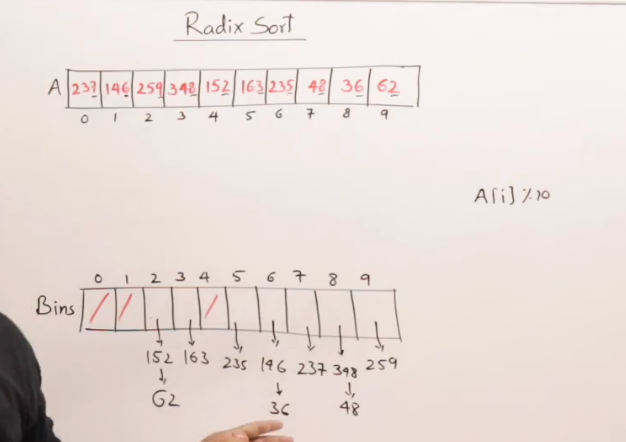 Radix Sort
A 237 146 259 348 152 163 235 48 36 62
0 1 2 3 4 5 6 7 8 9
A[i] % 10
0 1 2 3 4 5 6 7 8 9
Bins
152 163 235 146 237 348 259
62 36 48